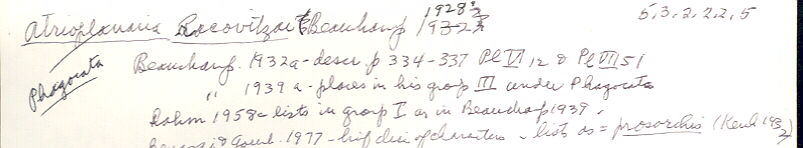 1928? 5, 3, 2, 2, 2, 5
Atrioplanaria Racovitzai Beauchamp 1932
Phagocata
Beauchamp. 1932a - descr. p 334-337 Pl VI 12 & Pl VII 51
" 1939 a - places in his group III under Phagocata
1958 - lists in group I as in Beauchamp 1939.
& Gourb. 1977 - brief disc of characters - lists as = prosorchis (Kenk 1937)